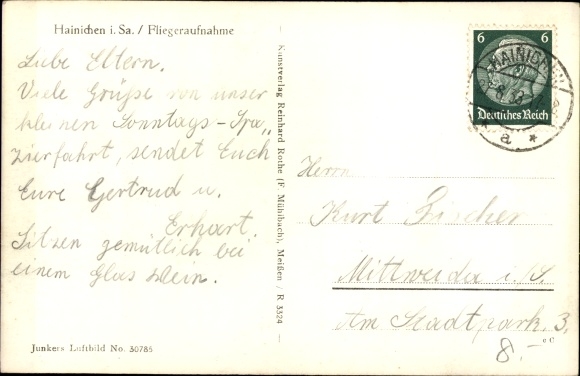 Hainichen i. Sa. / Fliegeraufnahme
Liebe Eltern.
Viele Grüße von unser
kleinen Sonntags-Spa„
zierfahrt, sendet Euch
Eure Gertrud u.
Erhart.
Sitzen gemütlich bei
einem Glas Wein.
Junkers Luftbild No. 30785
Kunstverlag Reinhard Rothe (F. Mühlbach), Meißen / R 3324
6 6
HAINICHEN
Deutsches Reich
a
Herrn
Kurt Fischer
Mittweida i./S.
Am Stadtpark 3.
8.-